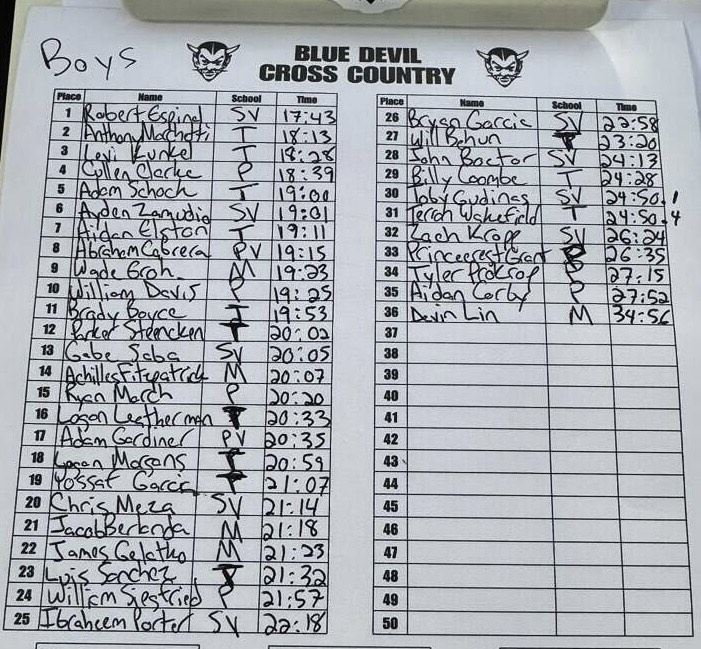 Boys
BLUE DEVIL
CROSS COUNTRY
Place Name School Time
1 Robert Espinal SV 17:43
2 Anthony Marchetti T 18:13
3 Levi Kunkel T 18:28
4 Cullen Clarke P 18:39
5 Adam Schoch T 19:00
6 Ayden Zamudio SV 19:01
7 Aidan Elston T 19:11
8 Abraham Cabrera PV 19:15
9 Wade Groh M 19:23
10 William Davis P 19:25
11 Brady Boyce T 19:53
12 Parker Steencken T 20:02
13 Gabe Saba SV 20:05
14 Achilles Fitzpatrick M 20:07
15 Ryan March P 20:20
16 Logan Leatherman T 20:33
17 Adam Gardiner PV 20:35
18 Logan Morgans T 20:59
19 Garcia T 21:07
20 Chris Meza SV 21:14
21 Jacob Berlanga M 21:18
22 James M 21:23
23 Luis Sanchez 21:32
24 William Siegfried P 21:57
25 Ibraheem Porter SV 22:18
Place Name School Time
26 Bryan Garcia SV 22:58
27 Will Behun T 23:20
28 John Boctor SV 24:13
29 Billy Coombe T 24:28
30 Toby Gudinas SV 24:50.1
31 Wakefield T 24:50.4
32 Zach Kropp SV 26:24
33 Grant P 26:35
34 Tyler Prokrop P 27:15
35 Aidan Corby P 27:52
36 Devin Lin M 34:56
37
38
39
40
41
42
43
44
45
46
47
48
49
50